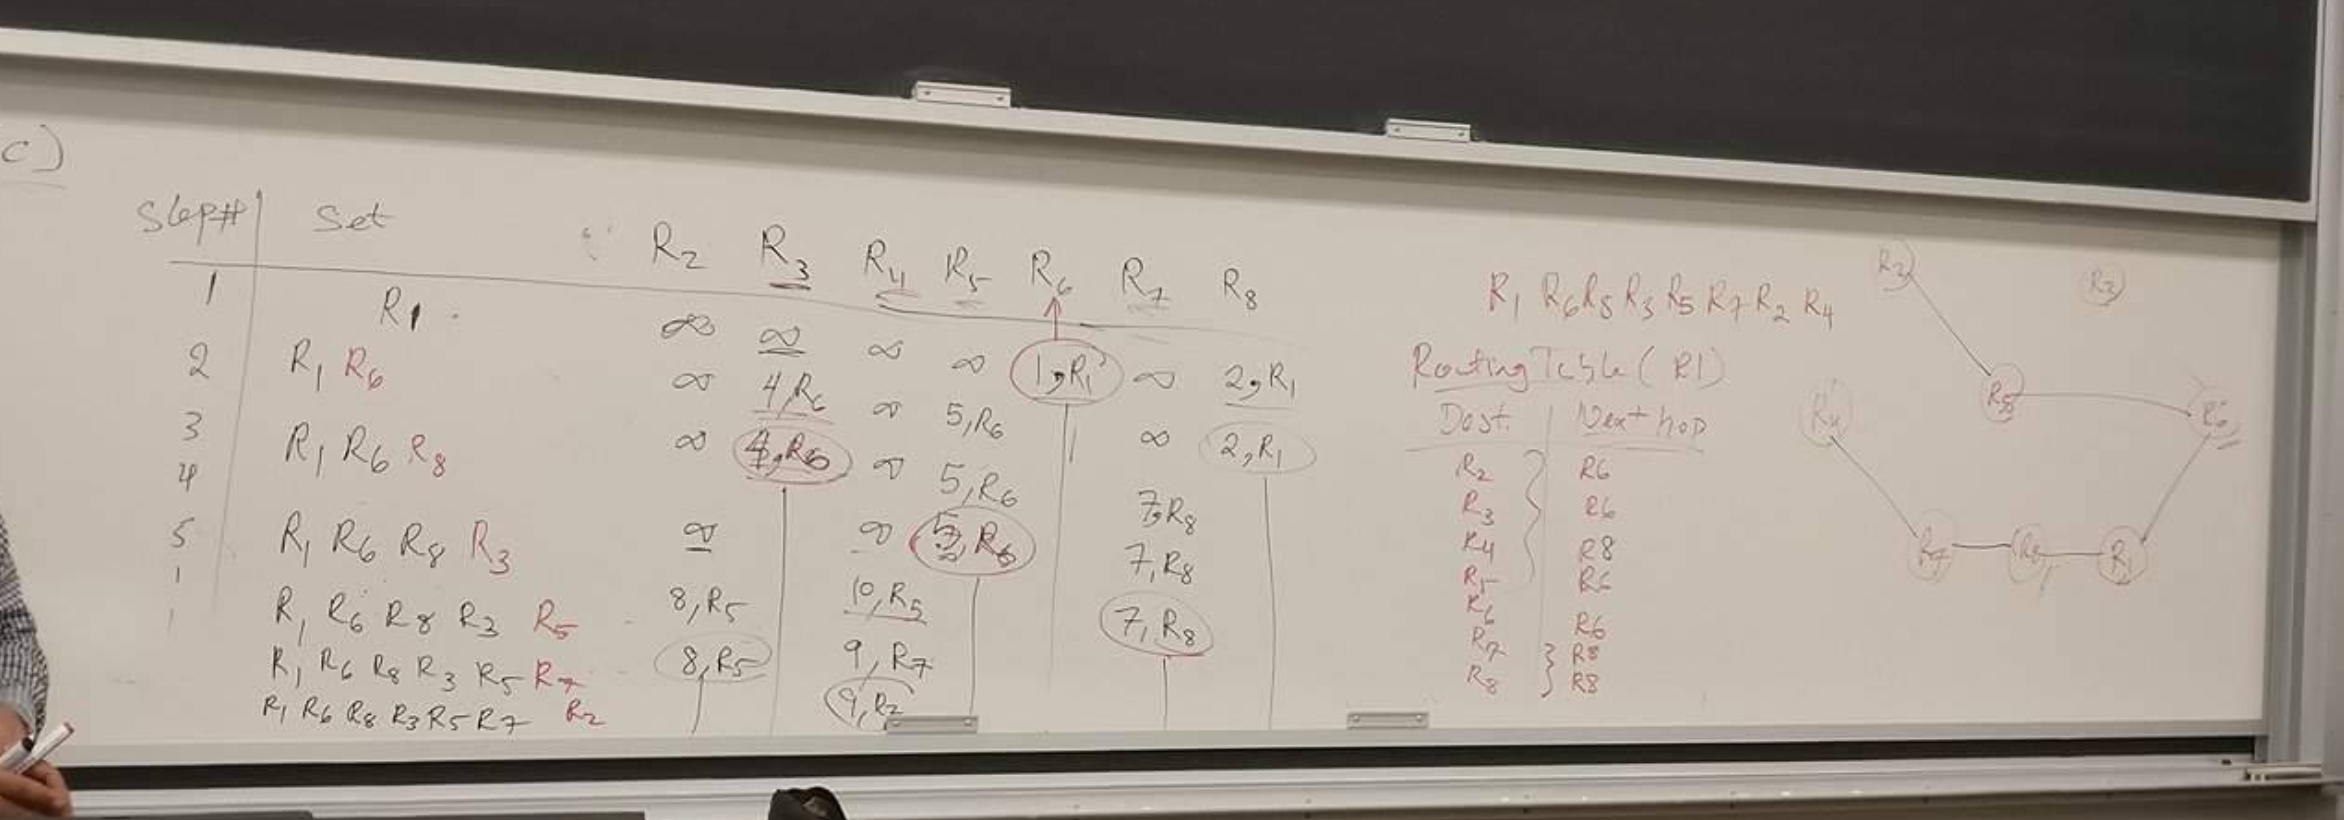 c)
Step# Set R2 R3 R4 R5 R6 R7 R8
1 R1 ∞ ∞ ∞ ∞ 1,R1 ∞ 2,R1
2 R1 R6 ∞ 4,R6 ∞ 5,R6 ∞ 2,R1
3 R1 R6 R8 ∞ 4,R6 ∞ 5,R6 7,R8
4
5 R1 R6 R8 R3 ∞ ∞ 5,R6 7,R8
R1 R6 R8 R3 R5 8,R5 10,R5 7,R8
R1 R6 R8 R3 R5 R7 8,R5 9,R7
R1 R6 R8 R3 R5 R7 R2 9,R7
R1 R6 R8 R3 R5 R7 R2 R4
Routing Table (R1)
Dest. Next hop
R2 R6
R3 R6
R4 R8
R5 R6
R6 R6
R7 R8
R8 R8
R3
R6
R7
R1